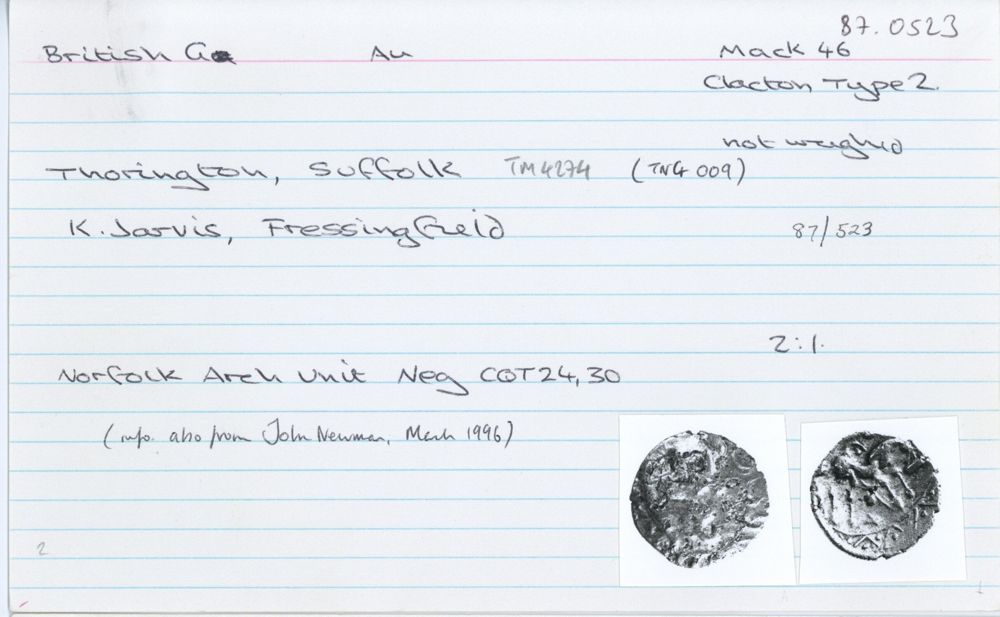 87.0523
British G Au Mack 46
Clacton Type 2.
not weighed
Thorington, Suffolk TM4274 (TNG 009)
K. Jarvis, Fressingfield 87/523
2:1.
Norfolk Arch Unit Neg CQT24,30
(info. also from John Newman, March 1996)
2